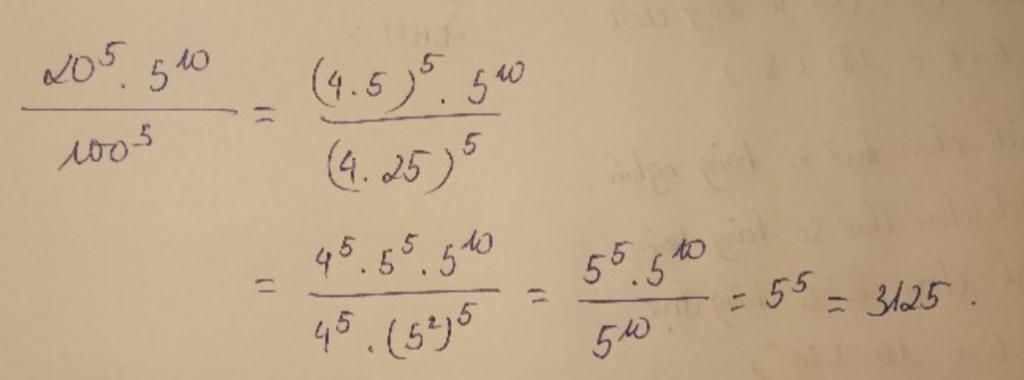 20⁵ . 5¹⁰ / 100⁵ = (4.5)⁵ . 5¹⁰ / (4.25)⁵
= 4⁵ . 5⁵ . 5¹⁰ / 4⁵ . (5²)⁵ = 5⁵ . 5¹⁰ / 5¹⁰ = 5⁵ = 3125 .